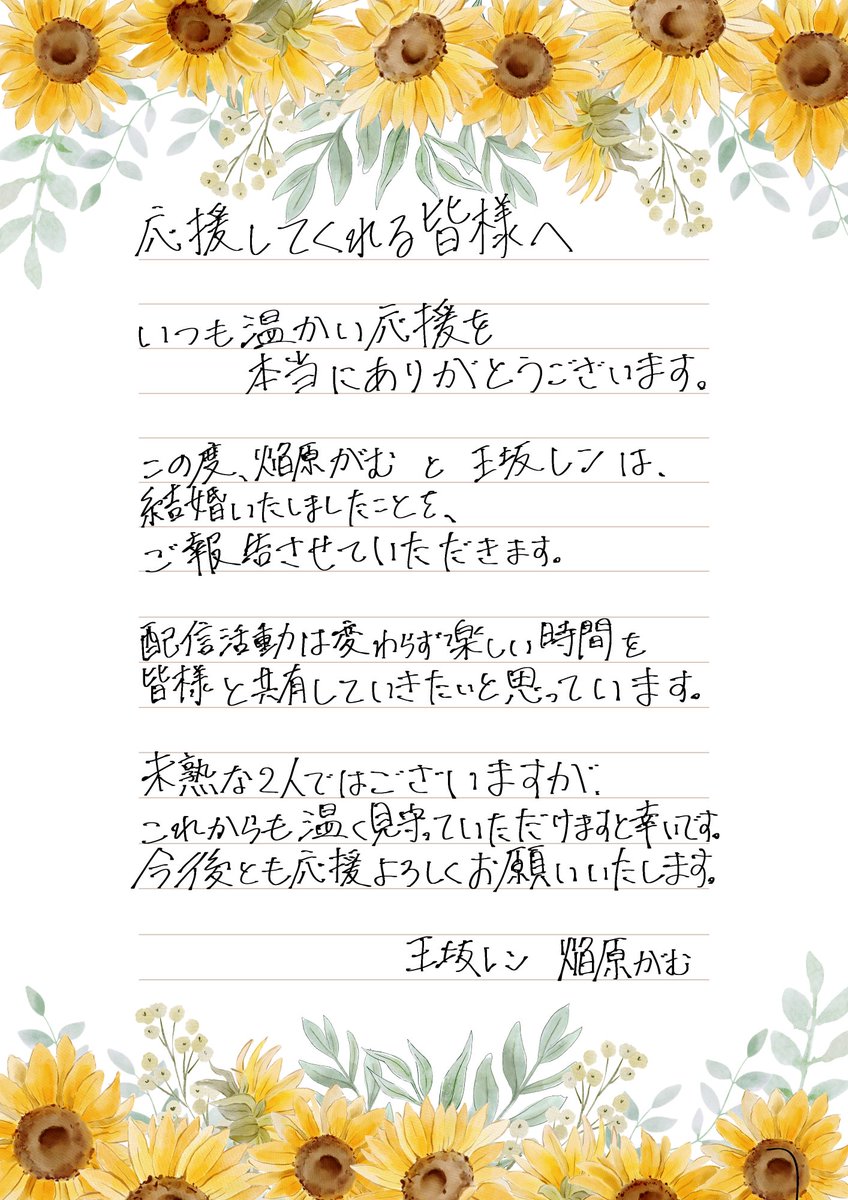 応援してくれる皆様へ
いつも温かい応援を
本当にありがとうございます。
この度、焔原がむ と 王坂レン は、
結婚いたしましたことを、
ご報告させていただきます。
配信活動は変わらず楽しい時間を
皆様と共有していきたいと思っています。
未熟な2人ではございますが、
これからも温く見守っていただけますと幸いです。
今後とも応援よろしくお願いいたします。
王坂レン 焔原がむ